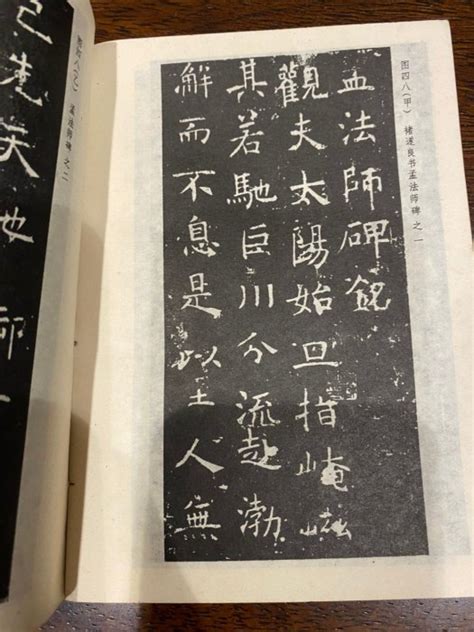 图四八(甲) 褚遂良书孟法师碑之一
孟法師碑銘
觀夫太陽始旦指崦嵫
其若馳巨川分流赴渤
解而不息是以士人無
图四八(乙) 孟法师碑之二
己先天